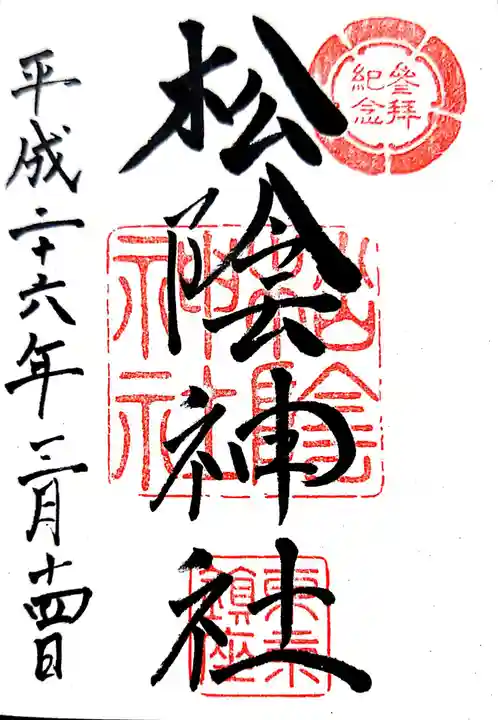 參拜
紀念
松陰神社
松陰
神社
東京
鎮座
平成二十六年三月十四日